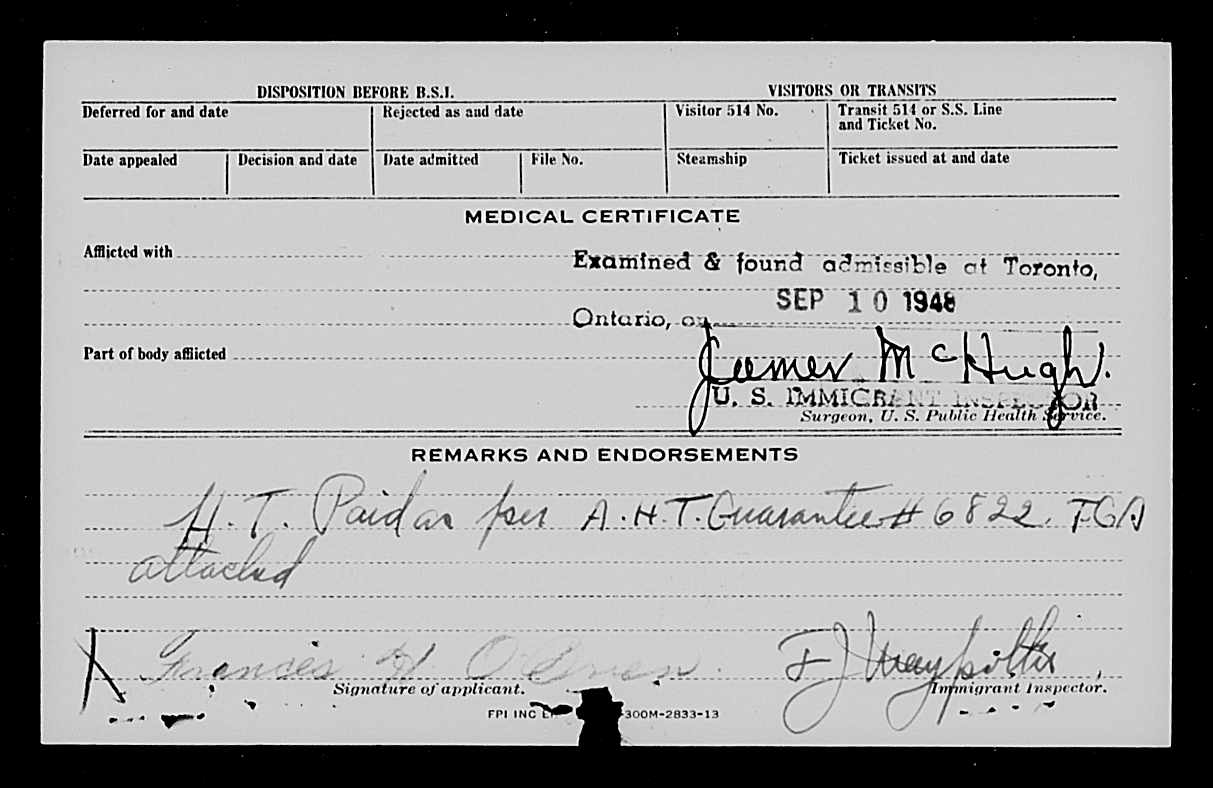 DISPOSITION BEFORE B.S.I. VISITORS OR TRANSITS
Deferred for and date Rejected as and date Visitor 514 No. Transit 514 or S.S. Line
and Ticket No.
Date appealed Decision and date Date admitted File No. Steamship Ticket issued at and date
MEDICAL CERTIFICATE
Afflicted with
Examined & found admissible at Toronto,
SEP 10 1948
Ontario, on
Part of body afflicted
James McHugh.
U. S. IMMIGRANT INSPECTOR
Surgeon, U. S. Public Health Service.
REMARKS AND ENDORSEMENTS
H. T. Paid as per A.H.T. Guarantee # 6822. TGA
attached
X Francis H O'Brien F J
Signature of applicant. Immigrant Inspector.
FPI INC 300M-2833-13